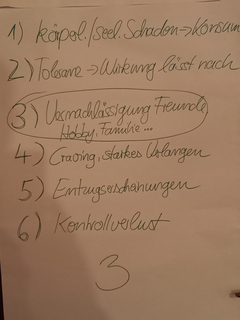 1) körperl./seel. Schaden → Konsum
2) Toleranz → Wirkung lässt nach
3) Vernachlässigung Freunde,
Hobby, Familie...
4) Craving, starkes Verlangen
5) Entzugserscheinungen
6) Kontrollverlust
3